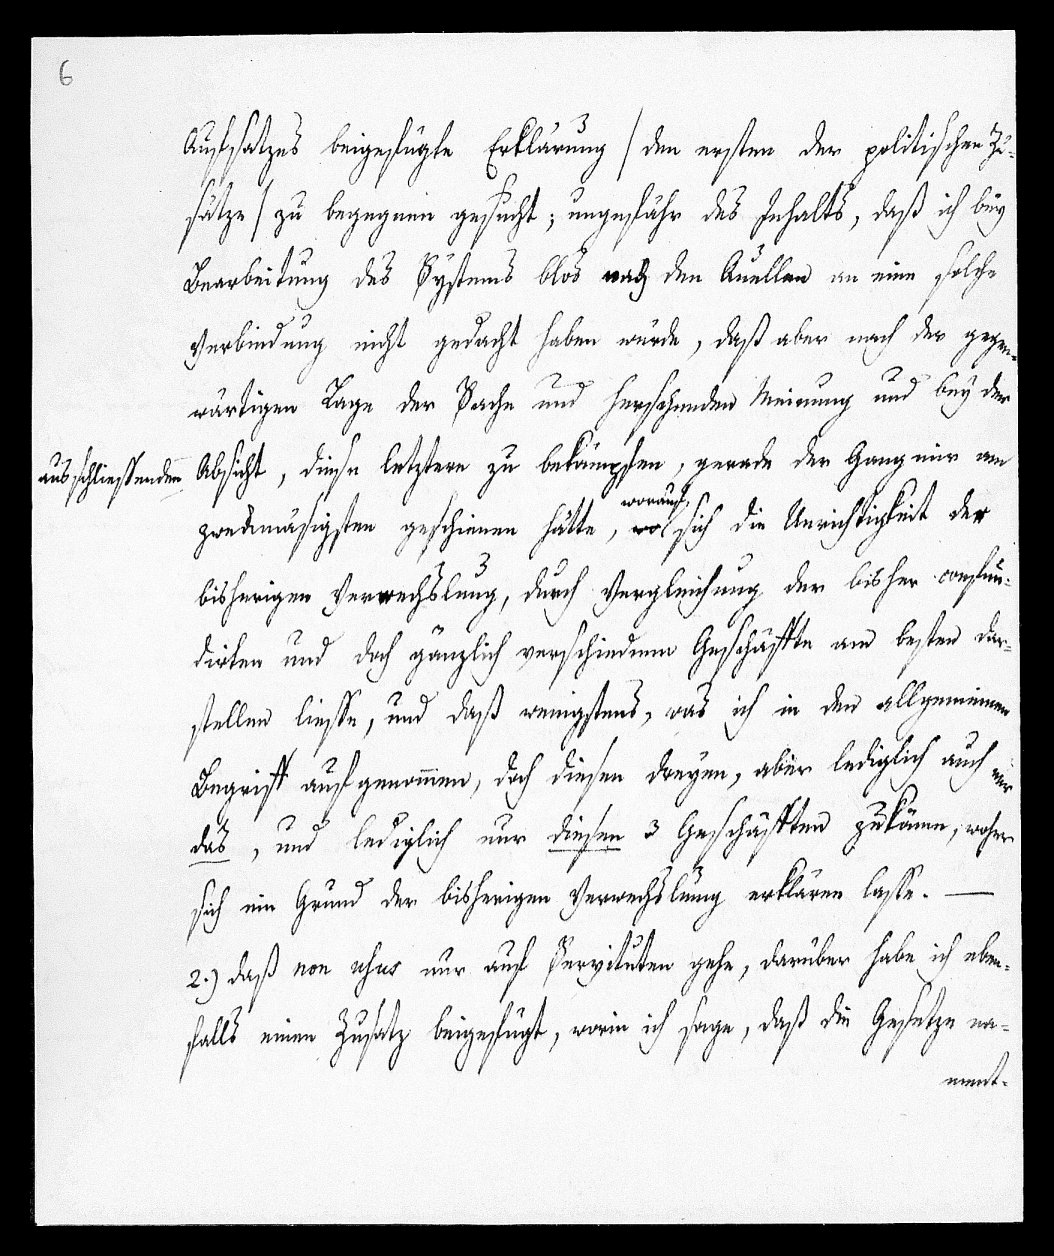 6
Aufsatzes beigefügte Erklärung / den ersten der politischen Zu-
sätze / zu begegnen gesucht; ungefähr des Inhalts, daß ich bey
Bearbeitung des Systems blos nach den Quellen an eine solche
Verbindung nicht gedacht haben würde, daß aber nach der gegen-
wärtigen Lage der Sache und herrschenden Meinung und bey der
ausschliessenden Absicht, diese letztere zu bekämpfen, gerade der Gang mir am
worauf
zweckmäsigsten geschienen hätte, wo sich die Unrichtigkeit der
bisherigen Verwechslung, durch Vergleichung der bisher confun-
dirten und doch gänzlich verschiednen Geschäffte am besten dar-
stellen liesse, und daß wenigstens, was ich in den allgemeinen
Begriff aufgenommen, doch diesen dreyen, aber lediglich auch nur
das, und lediglich nur diesen 3 Geschäfften zukäme, woher
sich ein Grund der bisherigen Verwechslung erklären lasse. —
2.) daß non usus nur auf Servituten gehe, darüber habe ich eben-
falls einen Zusatz beigefügt, worin ich sage, daß die Gesetze na-
ment-